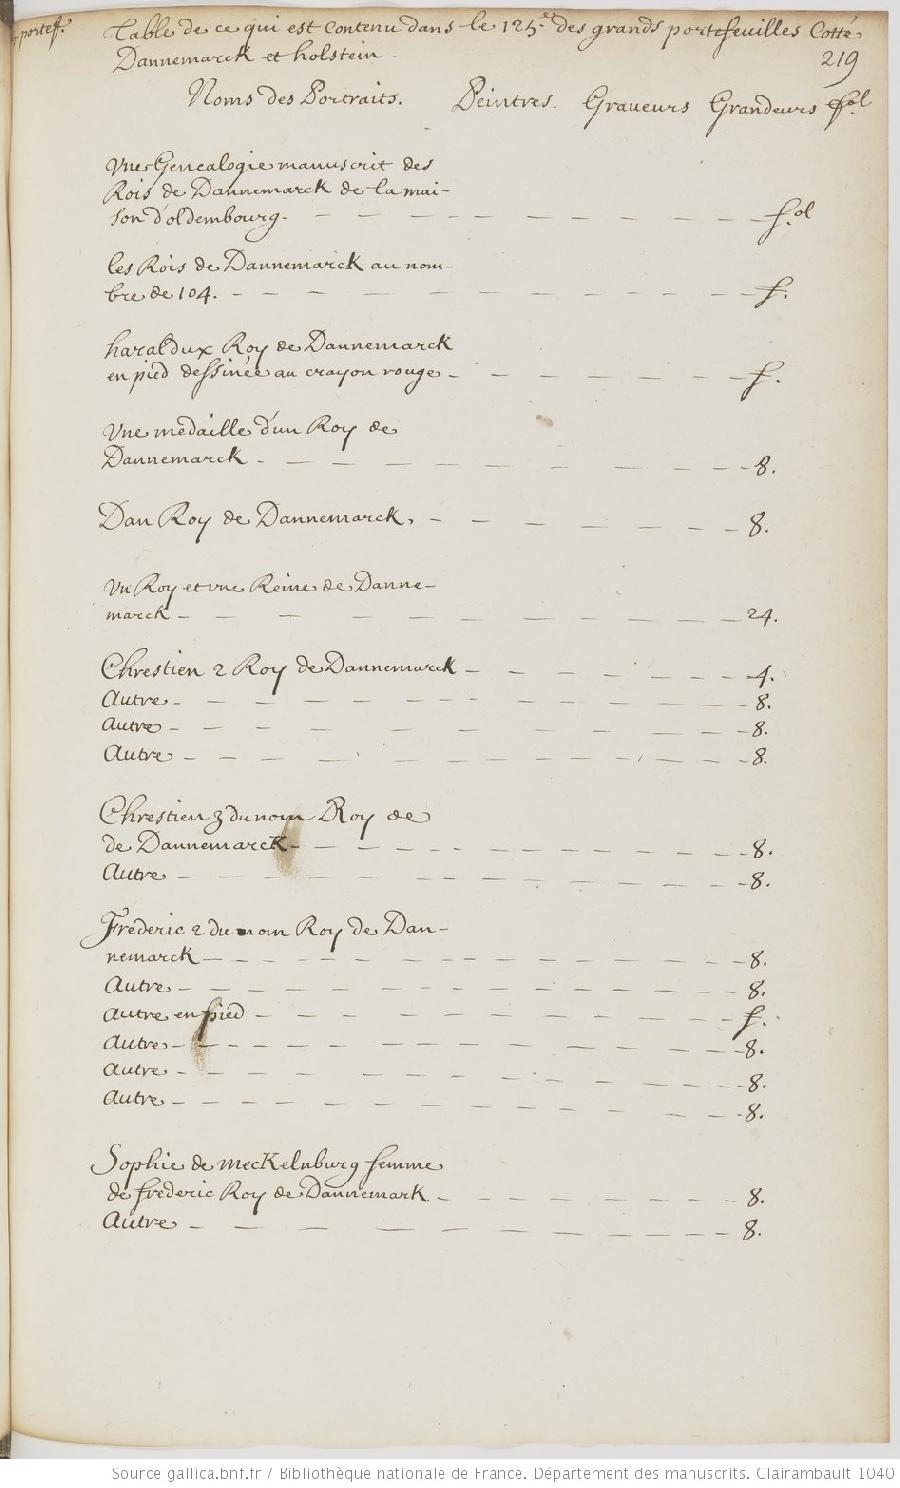 portef.
Table de ce qui est contenu dans le 125.e des grands portefeuilles Cotté
Dannemarck et holstein.
219
Noms des Portraits. Peintres. Graveurs Grandeurs fol.
Vne Genealogie manuscrit des
Rois de Dannemarck de la mai-
son d'oldembourg. fol
les Rois de Dannemarck au nom-
bre de 104. f.
haraldux Roy de Dannemarck
en pied dessinée au crayon rouge f.
Vne medaille d'un Roy de
Dannemarck 8.
Dan Roy de Dannemarck. 8.
Vn Roy et vne Reine de Danne-
marck 24.
Chrestien 2 Roy de Dannemarck 4.
Autre 8.
Autre 8.
Autre 8.
Chrestien 3 du nom Roy de
de Dannemarck 8.
Autre 8.
Frederic 2 du nom Roy de Dan-
nemarck 8.
Autre 8.
Autre en pied f.
Autre 8.
Autre 8.
Autre 8.
Sophie de mecKelnburg femme
de frederic Roy de Dannemark 8.
Autre 8.
Source gallica.bnf.fr / Bibliothèque nationale de France. Département des manuscrits. Clairambault 1040